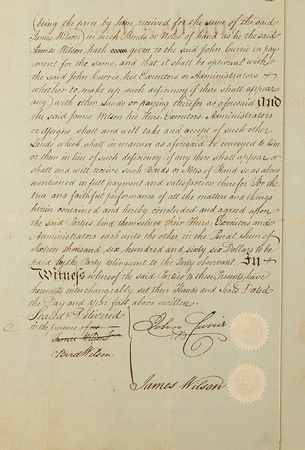 (being the price by him received for the same of the said
James Wilson) in such Bonds or Notes of Hand as he the said
James Wilson hath given to the said John Currie in pay-
ment for the same, and that it shall be optional with
the said John Currie his Executors or Administrators
whether to make up such deficiency if there shall appear
any) with other Lands or paying therefor as aforesaid And
the said James Wilson his Heirs Executors Administrators
or assigns shall and will take and accept of such other
Lands which shall in manner as aforesaid be conveyed to him
or them in lieu of such deficiency, if any there shall appear or
shall and will receive such Bonds or Notes of Hand so as above
mentioned in full payment and satisfaction therefor For the
true and faithful performance of all the matters and things
herein contained and hereby concluded and agreed when
the said Parties bind themselves their Heirs Executors and
Administrators each unto the other in the Penal Sum of
Sixteen thousand six hundred and sixty six Dollars to be
paid by the Party delinquent to the Party observant. In
Witness whereof the said Parties to these Presents have
hereunto interchangeably set their Hands and Seals Dated
the Day and Year first above written
Sealed & Delivered
in the presence of us
James Wilson
Bird Wilson
John Currie
James Wilson